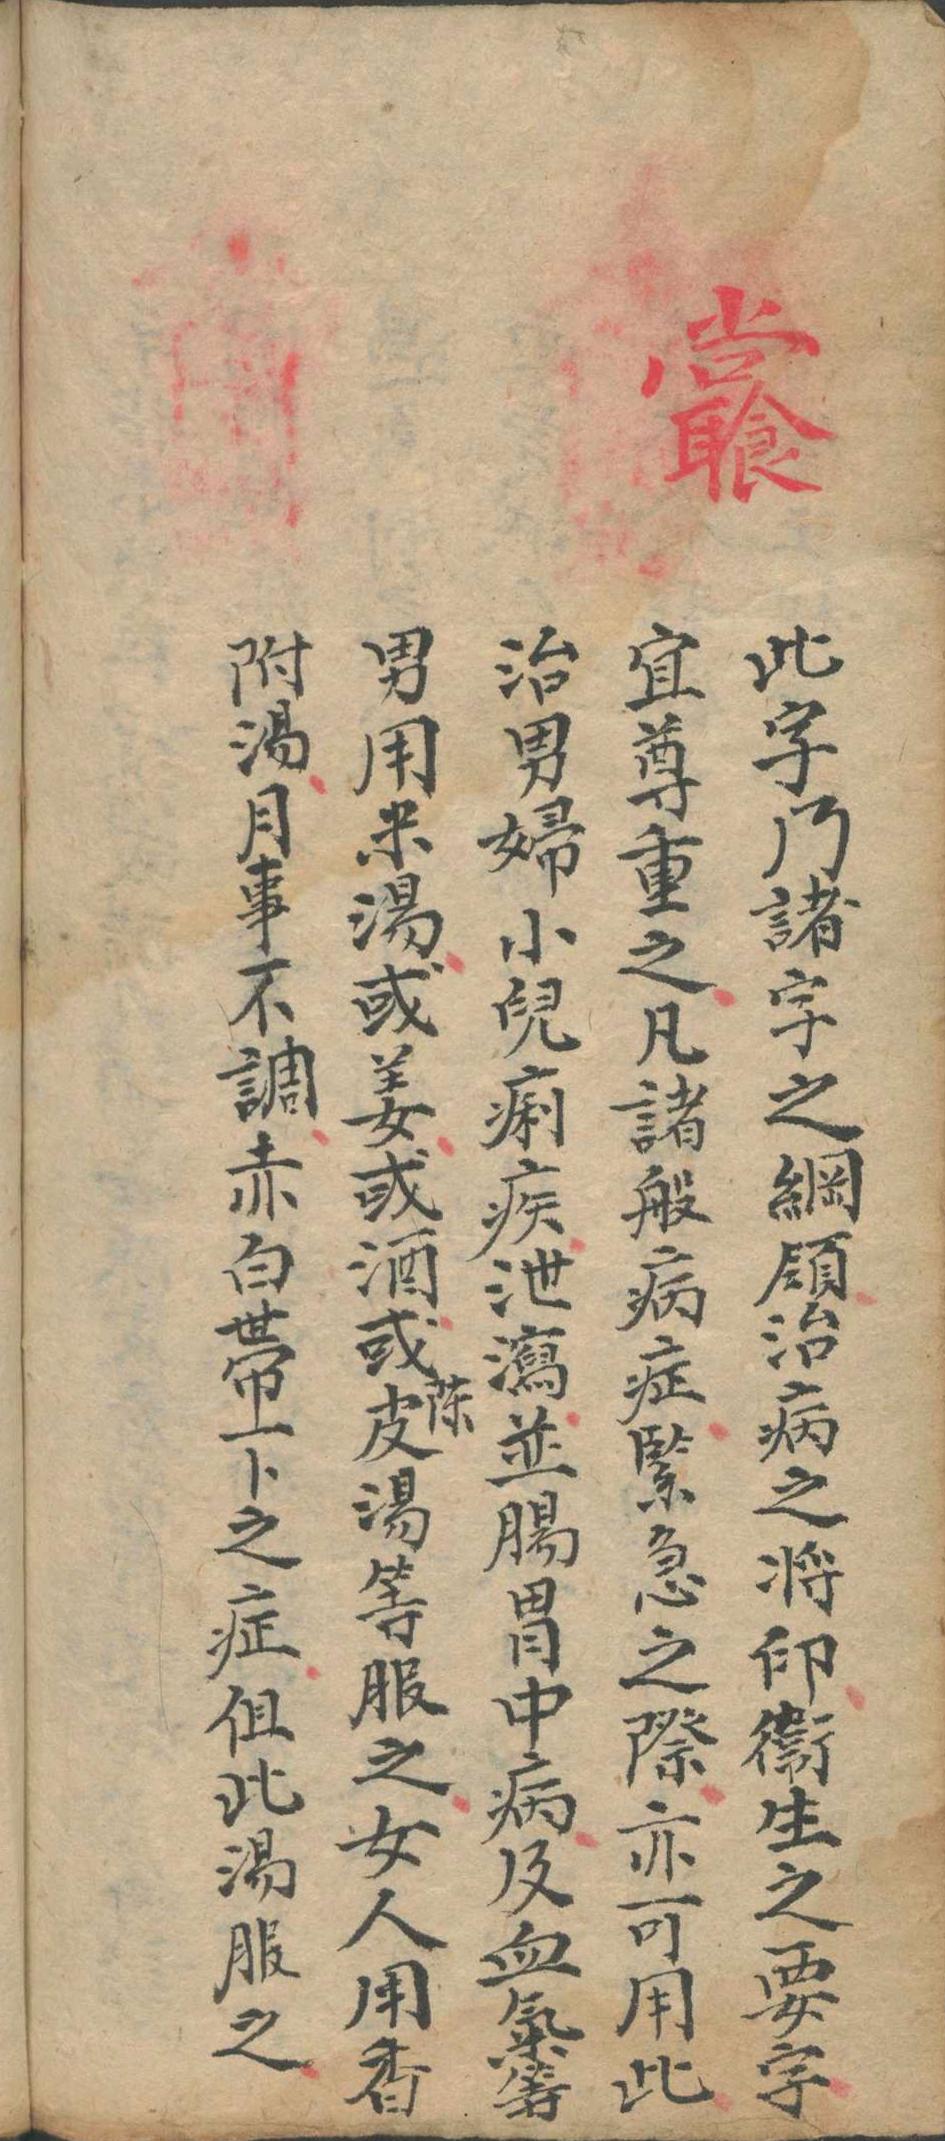 此字乃諸字之綱領治病之将印衛生之要字
宜尊重之凡諸般病症緊急之際亦可用此
治男婦小兒痢疾泄瀉並腸胃中病及血氣等
男用米湯或姜或酒或陈皮湯等服之女人用香
附湯月事不調赤白帶上下之症俱此湯服之